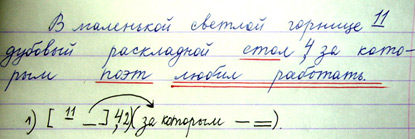 В маленькой светлой горнице 11
дубовый раскладной стол 4, за кото-
рым поэт любил работать.
1) [ 11 _ ] 42 (за которым — =).